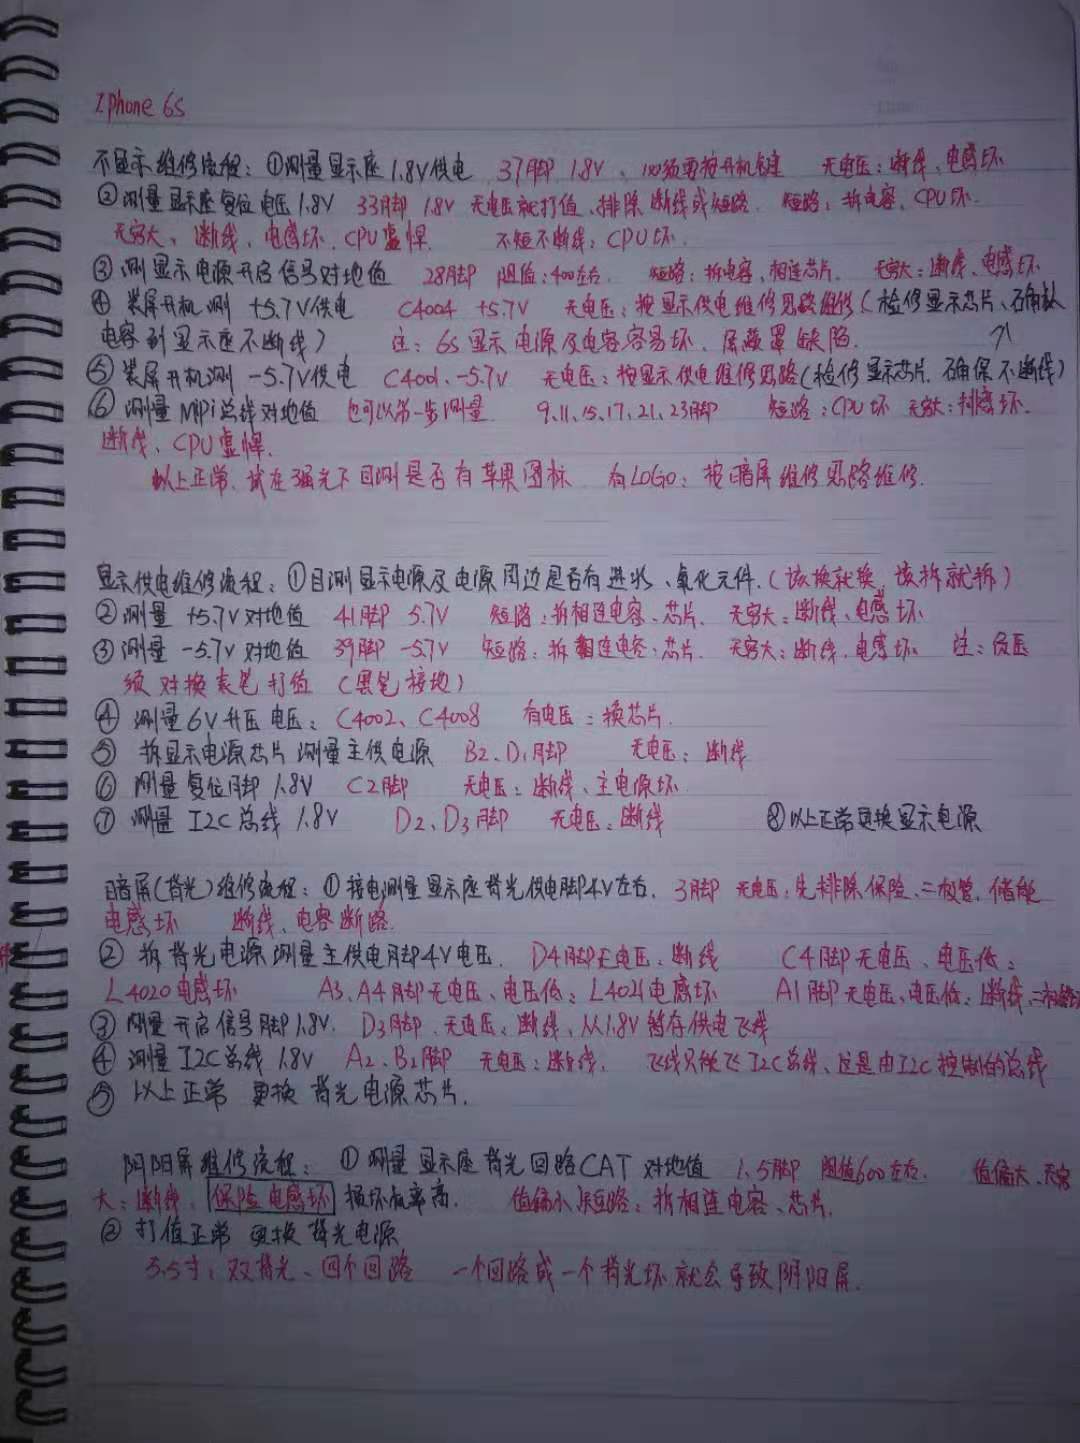 Iphone 6s
不显示维修流程：①测量显示座1.8V供电 37脚 1.8V、必须要按开机键 无电压：断线、电感坏
②测量显示座复位电压1.8V 33脚 1.8V 无电压就打值、排除断线或短路. 短路：拆电容、CPU坏.
无穷大、断线、电感坏、CPU虚悍. 不短不断线：CPU坏.
③测显示电源开启信号对地值 28脚 阻值：400左右. 短路：拆电容、相连芯片. 无穷大：断线、电感坏
④装屏开机测 +5.7V供电 C4004 +5.7V 无电压：按显示供电维修思路维修（检修显示芯片、确认
电容到显示座不断线） 注：6S显示电源及电容容易坏、屏蔽罩缺陷.
⑤装屏开机测 -5.7V供电 C4001、-5.7V 无电压：按显示供电维修思路（检修显示芯片. 确保不断线）
⑥测量MiPi总线对地值 也可以第一步测量 9.11.15.17.21.23脚 短路：CPU坏 无穷大：排感坏.
断线、CPU虚悍.
以上正常、试在强光下目测是否有苹果图标 有LOGO：按暗屏维修思路维修.
显示供电维修流程：①目测显示电源及电源周边是否有进水、氧化元件.（该换就换、该拆就拆）
②测量 +5.7V对地值 41脚 5.7V 短路：拆相连电容、芯片. 无穷大：断线、电感坏
③测量 -5.7V对地值 39脚 -5.7V 短路：拆相连电容：芯片. 无穷大：断线、电感坏. 注：负压
须对换表笔打值（黑笔接地）
④测量6V升压电压：C4002、C4008 有电压：换芯片.
⑤拆显示电源芯片测量主供电源 B2、D1脚 无电压：断线
⑥测量复位脚1.8V C2脚 无电压：断线、主电源坏.
⑦测量 I2C总线1.8V D2、D3脚 无电压：断线 ⑧以上正常更换显示电源
暗屏(背光)维修流程：①接电测量显示座背光供电脚4V左右. 3脚 无电压：先排除保险、二极管、储能
电感坏 断线、电容断路.
②拆背光电源测量主供电脚4V电压. D4脚无电压：断线 C4脚无电压、电压低：
L4020电感坏 A3、A4脚无电压、电压低：L4021电感坏 A1脚无电压、电压低：断线、二极管坏
③测量开启信号脚1.8V. D3脚、无电压：断线、从1.8V暂存供电飞线
④测量 I2C总线1.8V A2、B2脚 无电压：断线. 飞线只能飞I2C总线、这是由I2C控制的总线
⑤以上正常 更换背光电源芯片.
阴阳屏维修流程：①测量显示座背光回路CAT对地值 1.5脚 阻值600左右. 值偏大、无穷
大：断线、保险电感坏 损坏概率高. 值偏小 短路：拆相连电容、芯片.
②打值正常 更换背光电源
5.5寸：双背光、四个回路 一个回路或一个背光坏就会导致阴阳屏.